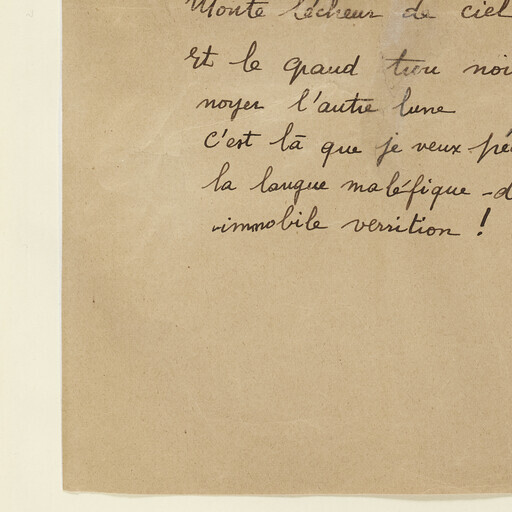 Monte lécheur de ciel
Et le grand trou noi
noyer l'autre lune
C'est là que je veux pê
la langue maléfique -d
-immobile verrition !